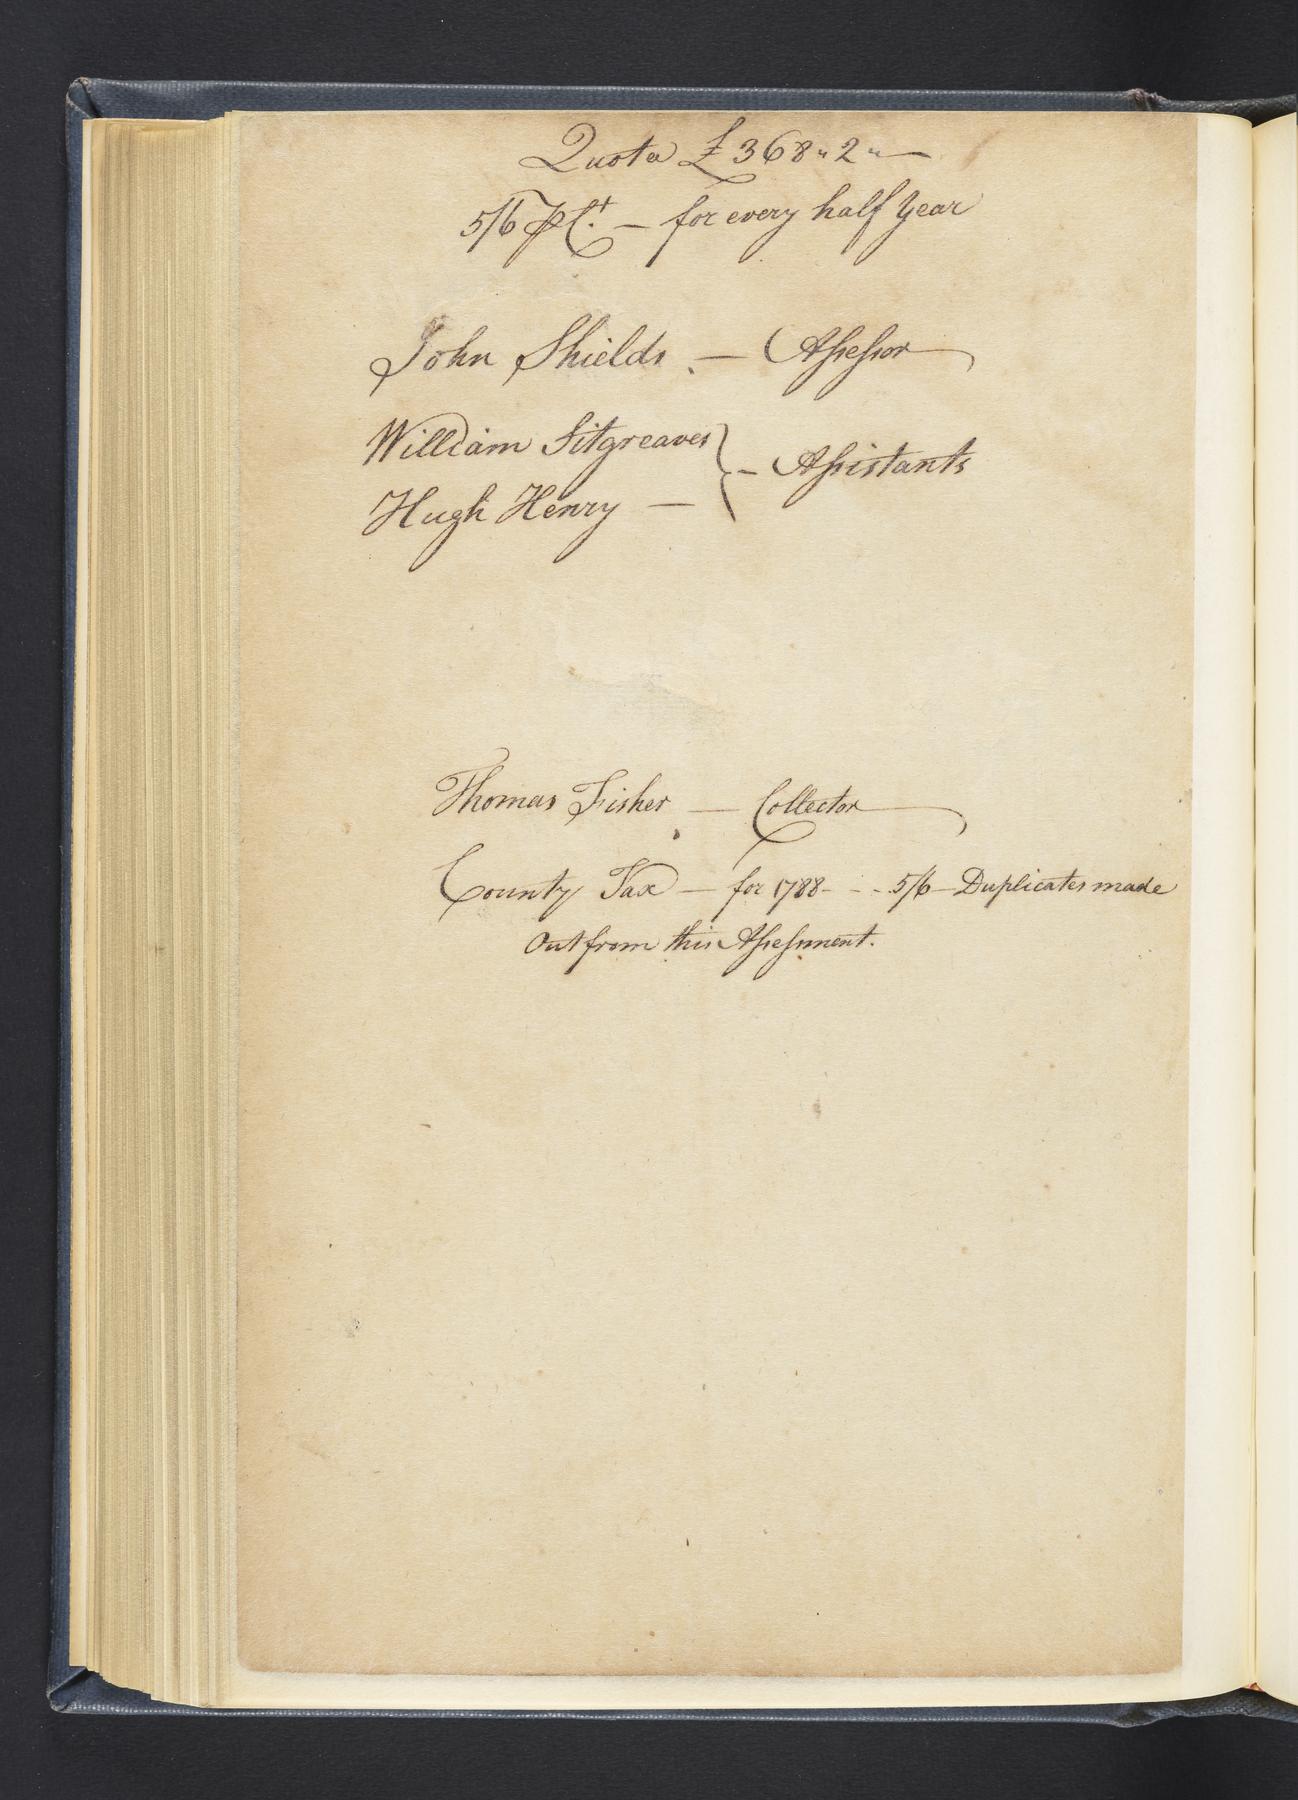 Quota £368"2"—
5/6 ⅌ Ct. — for every half Year
John Shields — Assessor
William Sitgreaves
Hugh Henry — } — Assistants
Thomas Fisher — Collector
County Tax — for 1788 - - - 5/6 — Duplicates made
Out from this Assessment.